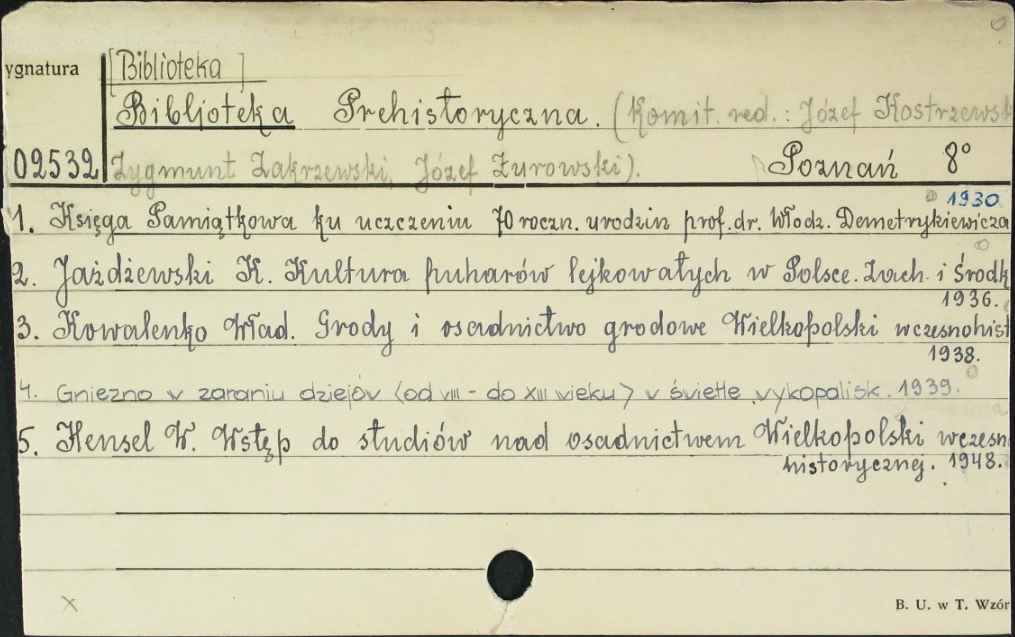 [Biblioteka]
ygnatura
Bibljoteka Prehistoryczna. (Komit. red.: Józef Kostrzewsk
02532 Zygmunt Zakrzewski, Józef Żurowski). Poznań 8°
1930
1. Księga Pamiątkowa ku uczczeniu 70 roczn. urodzin prof. dr. Włodz. Demetrykiewicza
2. Jażdżewski K. Kultura puharów lejkowatych w Polsce Zach. i Środk
1936.
3. Kowalenko Wład. Grody i osadnictwo grodowe Wielkopolski wczesnohist
1938.
4. Gniezno w zaraniu dziejów (od VIII - do XIII wieku) w świetle wykopalisk. 1939.
5. Hensel W. Wstęp do studiów nad osadnictwem Wielkopolski wczesn
historycznej. 1948.
x
B. U. w T. Wzór